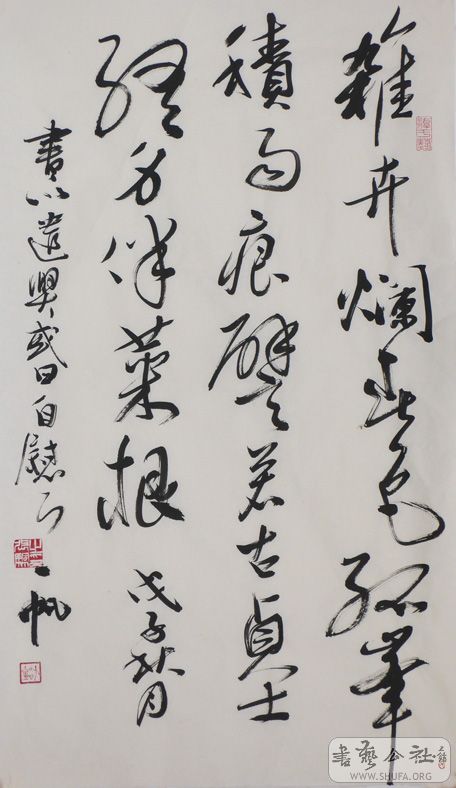 雜卉爛春色孤峯
積雨痕譬若古貞士
終身伴菜根 戊子秋月
書以遣興或曰自慰 一帆
書藝公社
WWW.SHUFA.ORG